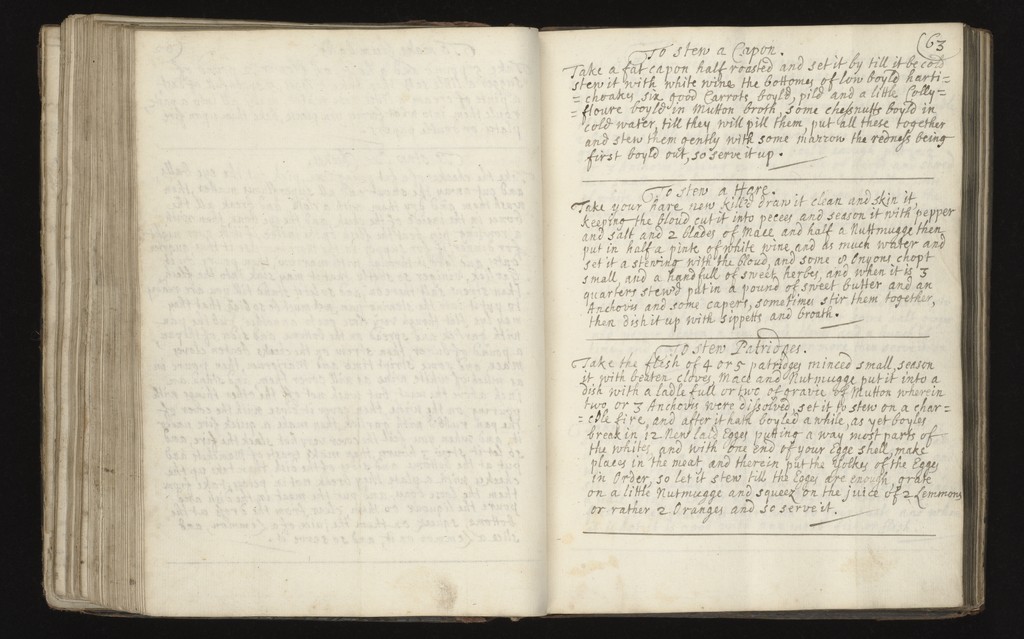 (63
To stew a Capon.
Take a fat capon half roasted and set it by till it be cold
stew it with white wine the bottomes of low boyld harti=
=choakes six good Carrots boyld, pild and a little Colly=
=floure boyld in Mutton broth, some chesnutts boyld in
cold water, till they will pill them, put all these together
and stew them gently with some marrow the redness being
first boyld out, so serve it up.
To stew a Hare.
Take your hare new killd draw it clean and skin it,
keeping the bloud cut it into peeces and season it with pepper
and salt and 2 blades of Mace and half a Nuttmugge then
put in half a pinte of white wine, and as much water and
set it a stewing with the bloud, and some 8 Onyons chopt
small, and a handfull of sweet herbes, and when it is 3
quarters stewd put in a pound of sweet butter and an
Anchovis and some capers, sometimes stir them together,
then dish it up with sippetts and broath.
To stew Patridges.
Take the flesh of 4 or 5 patridges minced small, season
it with beaten cloves, Mace and Nutmugge put it into a
dish with a ladle full or two of gravie of Mutton wherein
two or 3 Anchovis were dissolved, set it to stew on a char=
=cole fire, and after it hath boyled a while, as yet boyles
break in 12 New laid Egges putting a way most parts of
the whites, and with one end of your Egge shell, make
places in the meat and therein put the yolkes of the Egges
in Order, so let it stew till the Egges are enough, grate
on a little Nutmugge and squeez on the juice of 2 Lemmons
or rather 2 Oranges and so serve it.